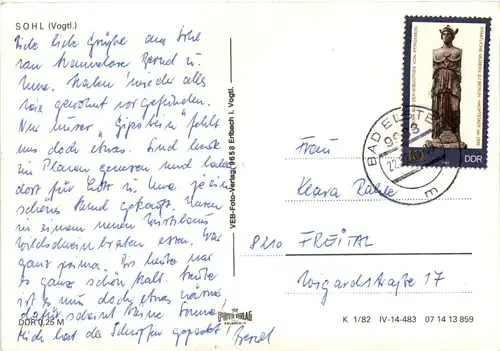 SOHL (Vogtl.)
liebe Grüße aus Sohl
Bernd u.
wieder alles
wie gewohnt vorgefunden.
Nur unser "Gipsbein" fehlt
uns doch etwas. Sind heute
in Plauen gewesen und haben
dort für u.
schönes gekauft. Waren
in einem neuen Wirtshaus
Wildschweinbraten essen. War
ganz prima. Bis heute war
es ganz schön kalt. Heute
ist es nun doch etwas wärmer
dafür scheint keine Sonne!
hat der Schnupfen gepackt
Bernd
DDR 0,25 M
VEB-Foto-Verlag 9656 Erlbach i. Vogtl.
FOTO VERLAG
ERLBACH V.
DDR
BAD ELSTER
Frau
Klara
8210 FREITAL
Wigardstraße 17
K 1/82 IV-14-483 07 14 13 859